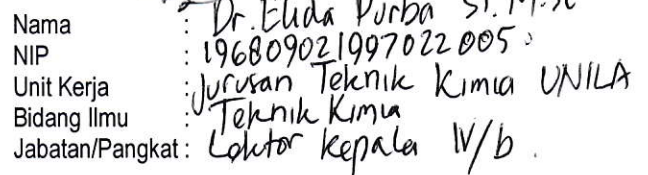 Nama : Dr. Elida Purba ST. M.Sc
NIP : 196809021997022005
Unit Kerja : Jurusan Teknik Kimia UNILA
Bidang Ilmu : Teknik Kimia
Jabatan/Pangkat : Lektor Kepala IV/b.